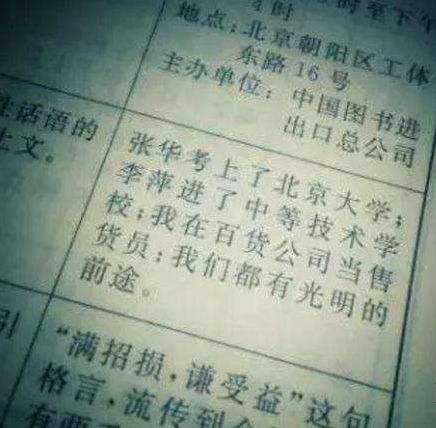 时至下午
地点：北京朝阳区工体
东路16号
主办单位：中国图书进
出口总公司
话语的
上文。
张华考上了北京大学；
李萍进了中等技术学
校；我在百货公司当售
货员：我们都有光明的
前途。
引
“满招损，谦受益”这句
格言，流传到